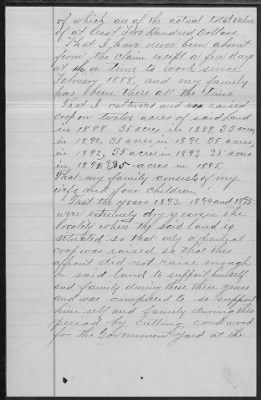 of which are of the actual total value
of at least Two Hundred Dollars.
That I have never been absent
from the claim except a few days
at a time to work since
February 1888, and my family
has been there all the time
That I cultivated and raised
crop on twelve acres of said land
in 1888. 35 acres in 1889 35 acres
in 1890, 35 acres in 1891 35 acres
in 1892, 35 acres in 1893, 35 acres
in 1894 35 acres in 1895.
That my family consists of my
wife and four children.
That the years 1893, 1894 and 1895
were extremely dry years in the
locality where the said land is
situated so that only a partial
crop was raised so that this
affiant did not raise enough
on said land to support himself
and family during these three years
and was compelled to so support
him self and family during this
period by cutting cord wood
for the Government Yard at the